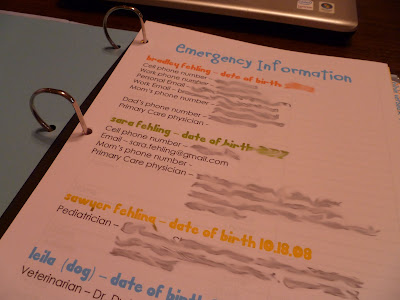 Emergency Information
bradley fehling - date of birth
Cell phone number -
Work phone number -
Personal Email -
Work Email -
Mom's phone number -
Dad's phone number -
Primary Care physician -
sara fehling - date of birth
Cell phone number -
Email - sara.fehling@gmail.com
Mom's phone number -
Primary Care physician -
sawyer fehling - date of birth 10.18.08
Pediatrician -
leila (dog) - date of birth
Veterinarian - Dr.